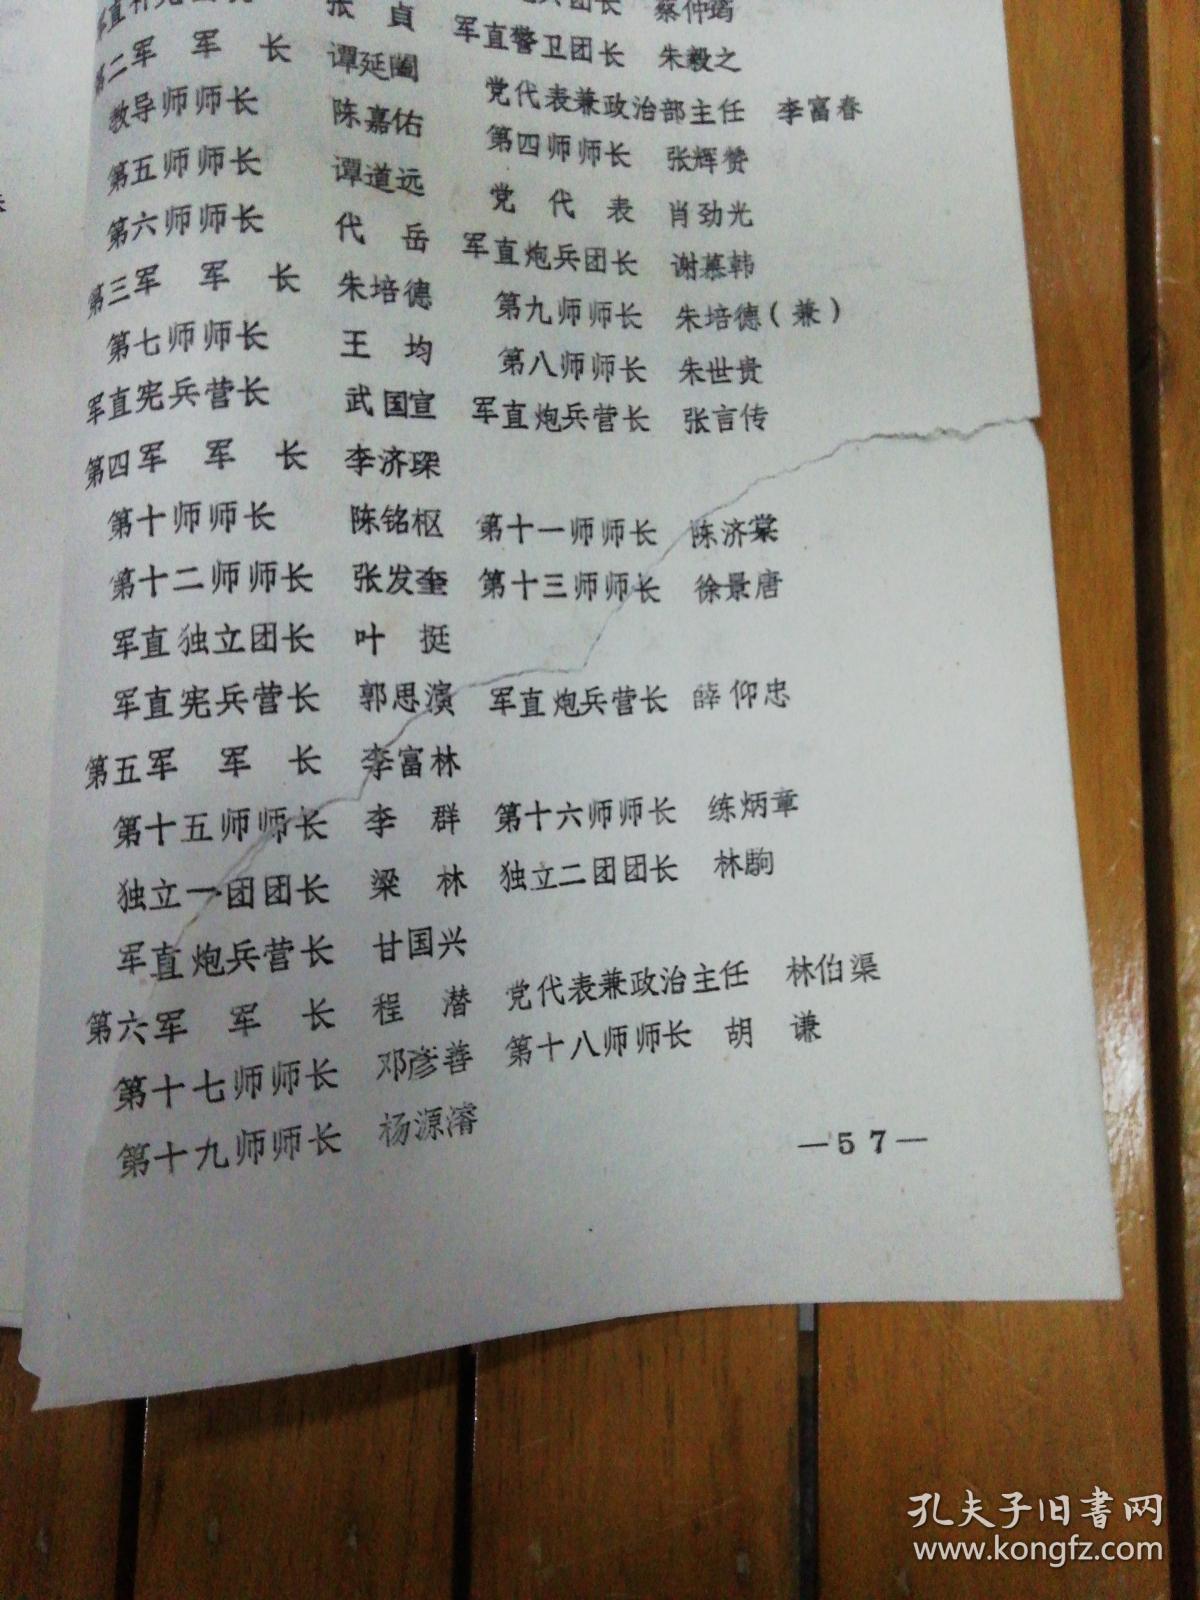 张 貞 兵团长 蔡仲
第二军 军 长 谭延闿 军直警卫团长 朱毅之
教导师师长 陈嘉佑 党代表兼政治部主任 李富春
第五师师长 谭道远 第四师师长 张辉赞
第六师师长 代 岳 党 代 表 肖劲光
第三军 军 长 朱培德 军直炮兵团长 谢慕韩
第七师师长 王 均 第九师师长 朱培德(兼)
军直宪兵营长 武国宣 第八师师长 朱世贵
第四军 军 长 李济琛 军直炮兵营长 张言传
第十师师长 陈铭枢 第十一师师长 陈济棠
第十二师师长 张发奎 第十三师师长 徐景唐
军直独立团长 叶 挺
军直宪兵营长 郭思演 军直炮兵营长 薛仰忠
第五军 军 长 李富林
第十五师师长 李 群 第十六师师长 练炳章
独立一团团长 梁 林 独立二团团长 林駒
军直炮兵营长 甘国兴
第六军 军 长 程 潜 党代表兼政治主任 林伯渠
第十七师师长 邓彦善 第十八师师长 胡 谦
第十九师师长 杨源濬
—57—
孔夫子旧书网
www.kongfz.com